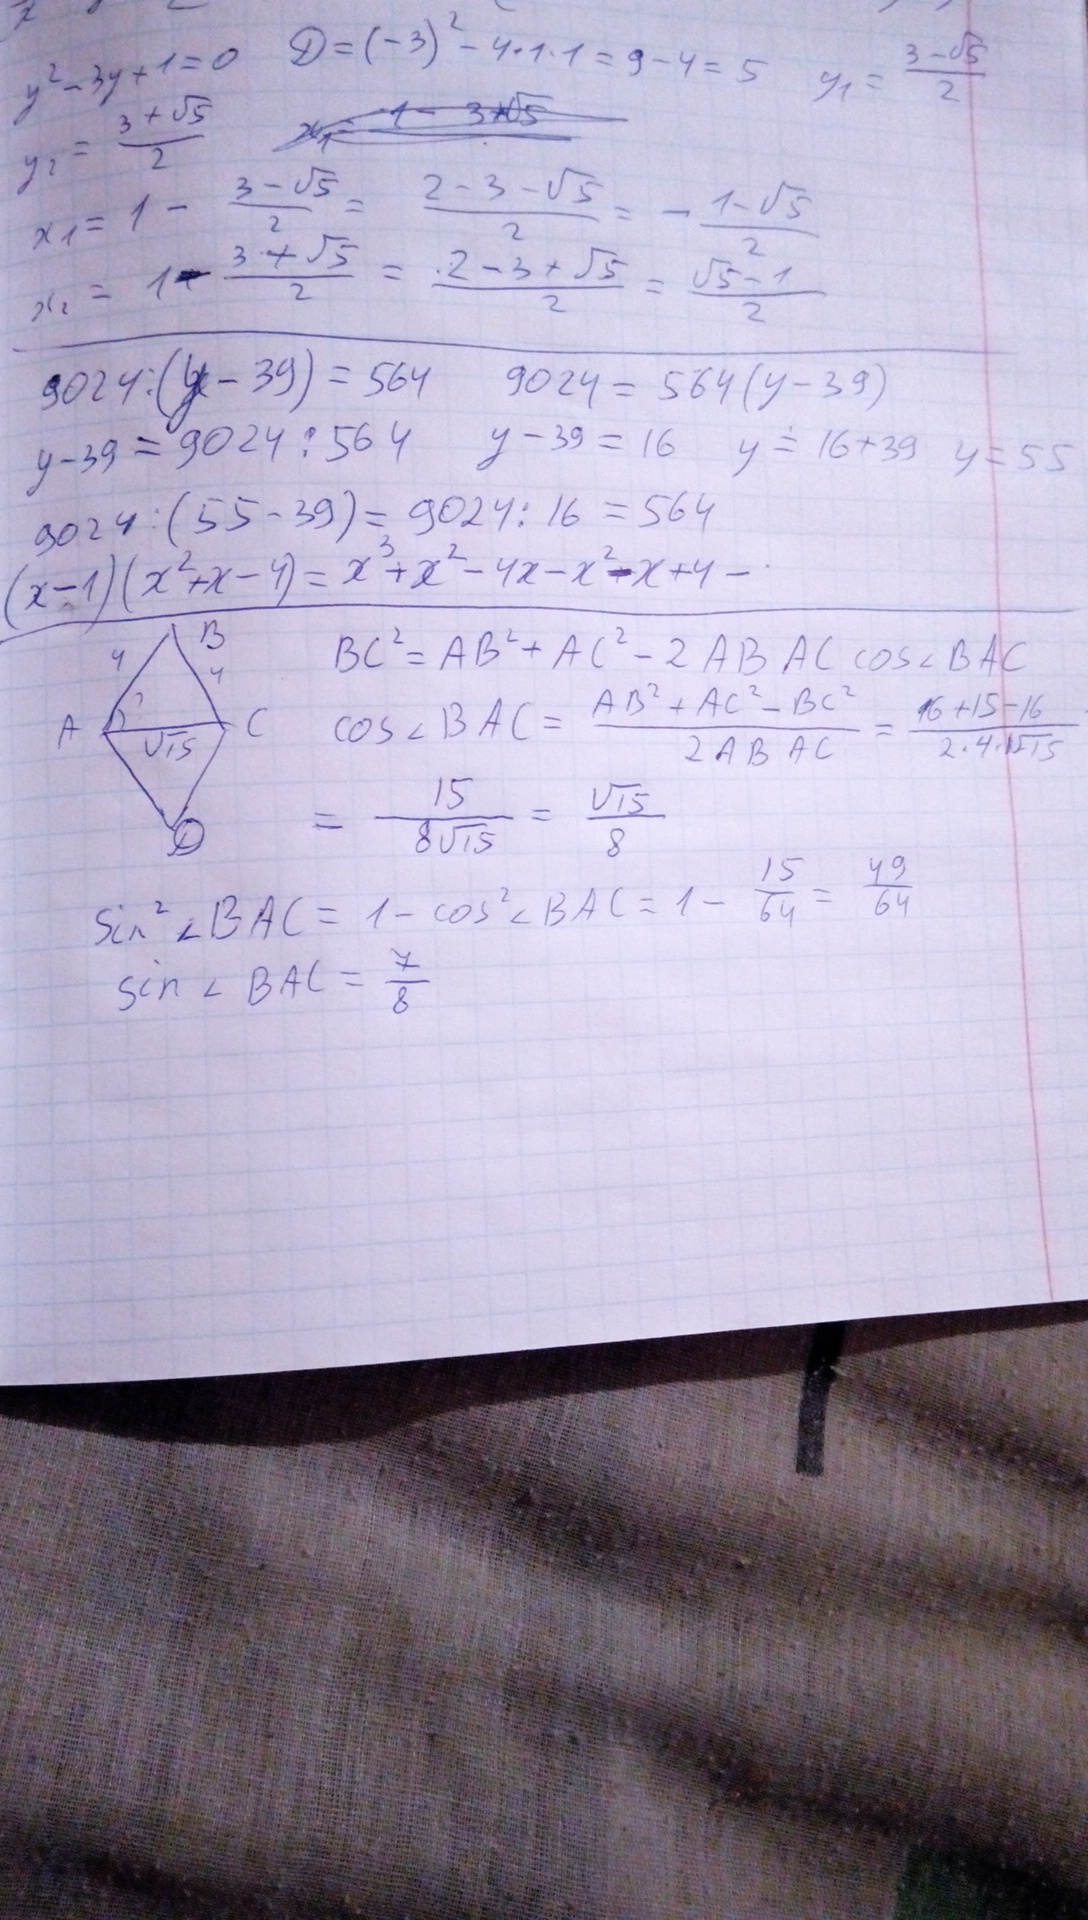 y² - 3y + 1 = 0 D = (-3)² - 4·1·1 = 9 - 4 = 5 y₁ = (3-√5)/2
y₂ = (3+√5)/2
x₁ = 1 - (3-√5)/2 = (2-3-√5)/2 = -(1-√5)/2
x₂ = 1 - (3+√5)/2 = (2-3+√5)/2 = (√5-1)/2
9024:(y-39) = 564 9024 = 564(y-39)
y-39 = 9024:564 y-39 = 16 y = 16+39 y = 55
9024:(55-39) = 9024:16 = 564
(x-1)(x²+x-4) = x³+x²-4x-x²-x+4 -
B
4 4
A C
√15
D
BC² = AB² + AC² - 2 AB AC cos∠BAC
cos∠BAC = (AB² + AC² - BC²)/(2 AB AC) = (16+15-16)/(2·4·√15)
= 15/(8√15) = √15/8
sin²∠BAC = 1 - cos²∠BAC = 1 - 15/64 = 49/64
sin∠BAC = 7/8